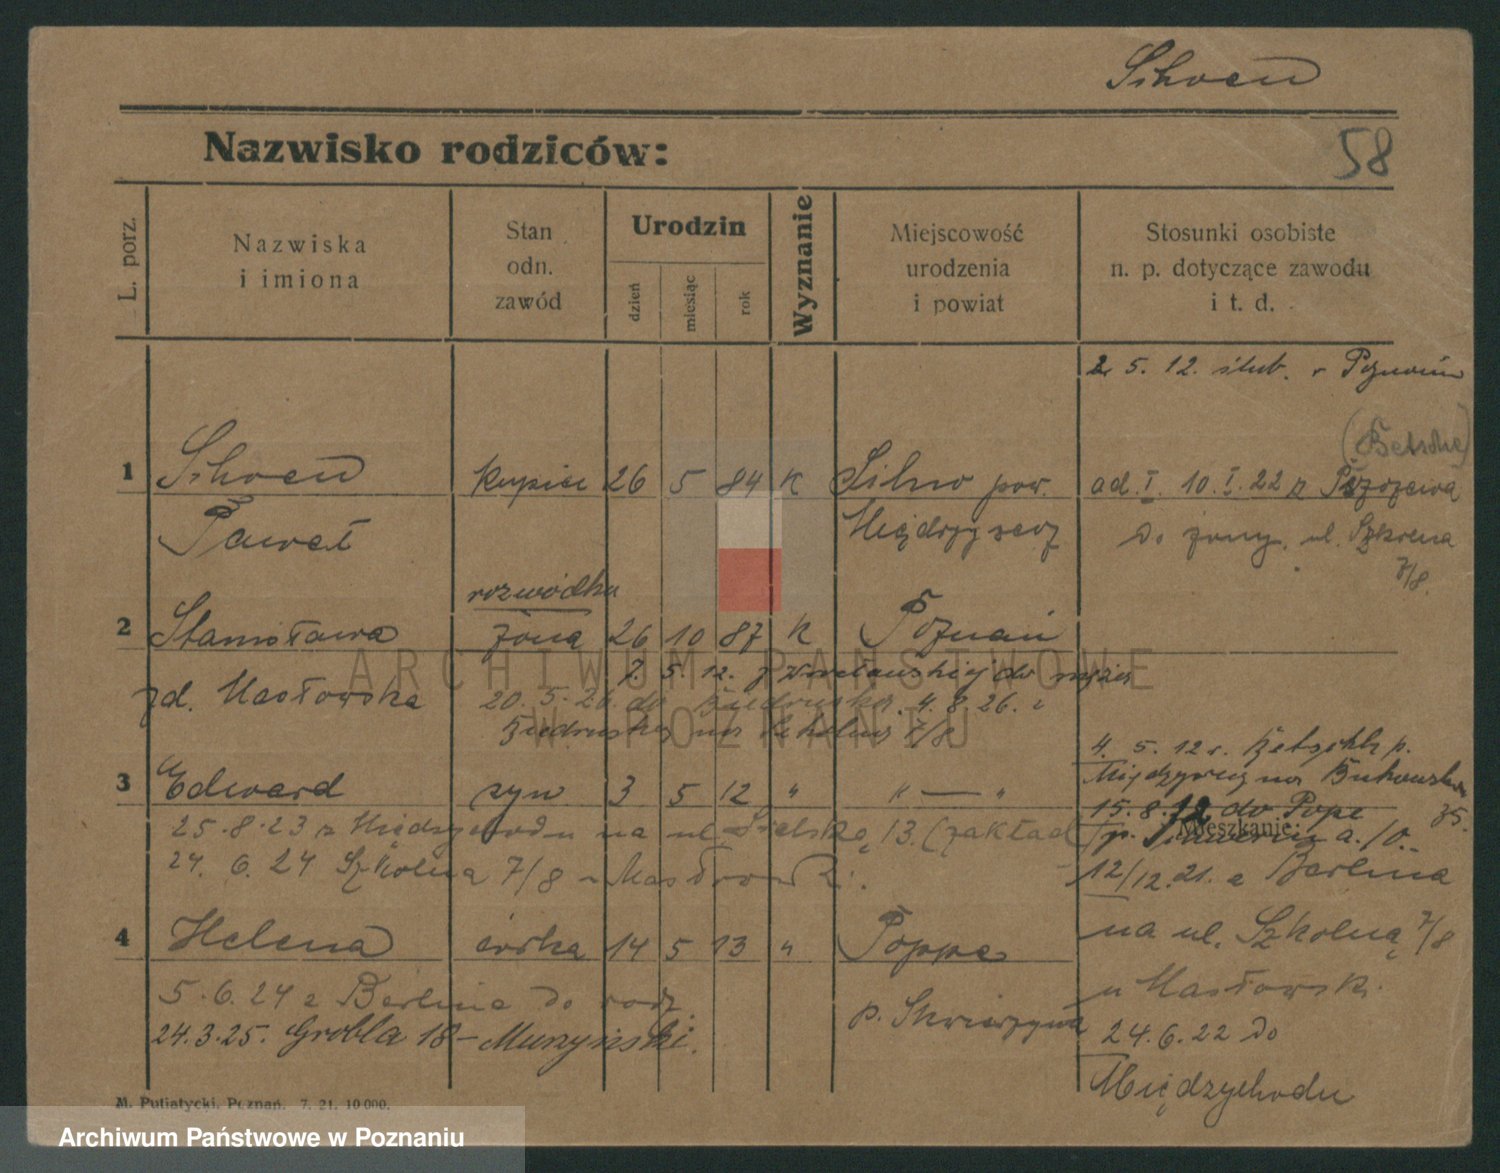 Schoen
58
Nazwisko rodziców:
L. porz.
Nazwiska
i imiona
Stan
odn.
zawód
Urodzin
dzień
miesiąc
rok
Wyznanie
Miejscowość
urodzenia
i powiat
Stosunki osobiste
n. p. dotyczące zawodu
i t. d.
5. 12. ślub. w Poznaniu
(Betsche)
1 Schoen kupiec 26 5 84 K Silno pow. ad. I. 10. I. 22 z Pszczewa
Paweł Międzyrzecz do żony, ul. Szkolna
7/8.
rozwódka
2 Stanisława żona 26 10 87 K Poznań
zd. Masłowska 7. 5. 12. z do męża
20. 5. 26. do Biedruska. 4. 8. 26. z
Biedruska na Szkolną 7/8
4. 5. 12 r. Betsche p.
3 Edward syn 3 5 12 " " — " Międzyrzecz na Bukowską
15. 8. 12 do Pope 35.
25.8.23 z Międzychodu na ul. Sielską 13. (zakład) p. Skwierzyna a./O.
Mieszkanie:
24. 6. 24 Szkolna 7/8 u Masłowsk. 12/12. 21. z Berlina
na ul. Szkolną 7/8
4 Helena córka 14 5 13 " Poppe
u Masłowsk.
5. 6. 24 z Berlina do rodz. p. Skwierzyna
24.3.25. Grobla 18 – Muszyński. 24. 6. 22 do
Międzychodu
M. Putiatycki, Poznań. 7. 21. 10 000.
ARCHIWUM PAŃSTWOWE
W POZNANIU
Archiwum Państwowe w Poznaniu